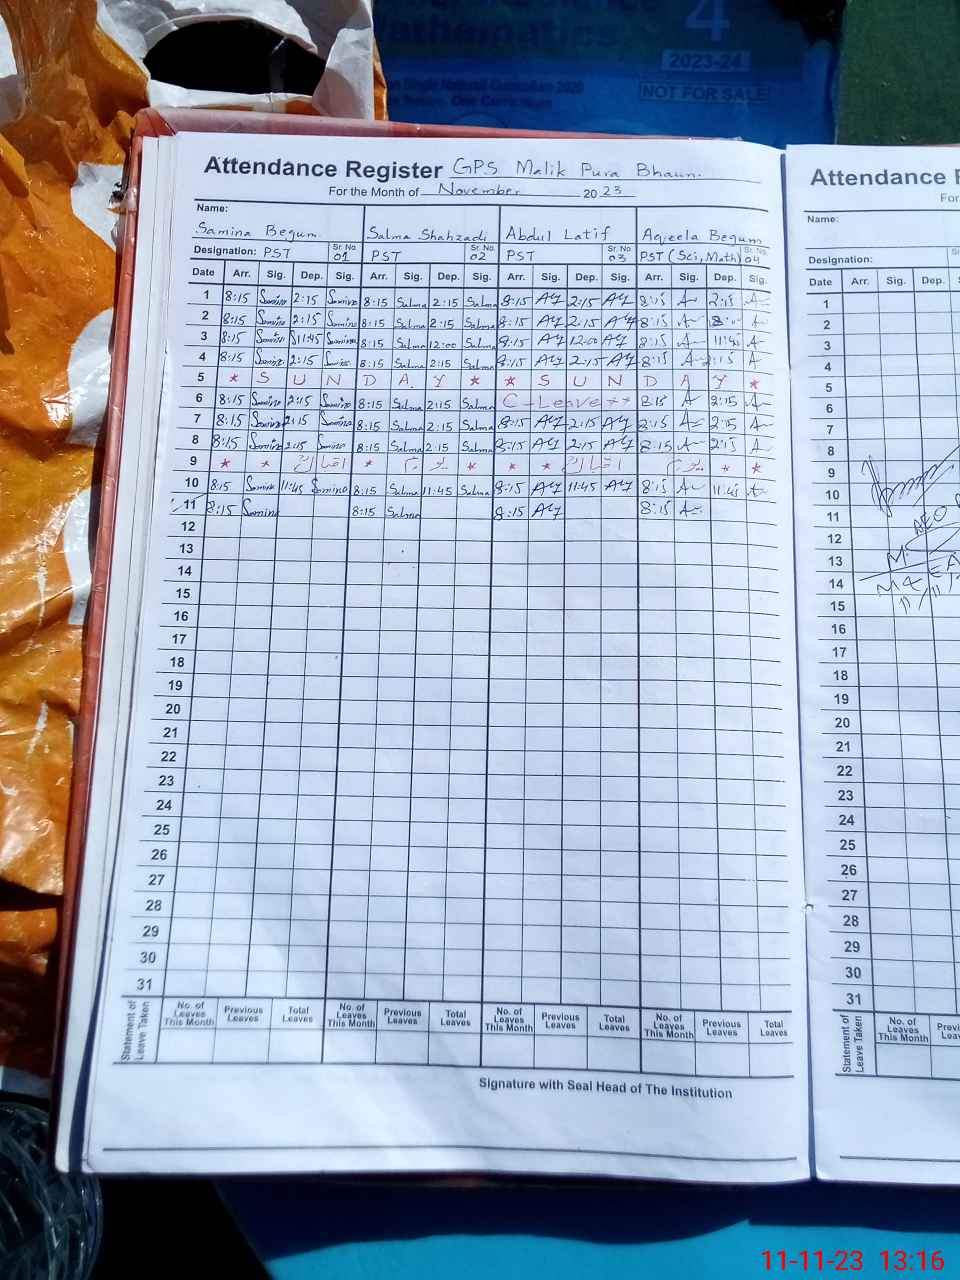 Mathematics
4
2023-24
Single National Curriculum 2020
One Curriculum
NOT FOR SALE
Attendance Register GPS Malik Pura Bhaun.
For the Month of November 2023
Name:
Samina Begum Salma Shahzadi Abdul Latif Aqeela Begum
Designation: PST Sr. No. 01 PST Sr. No. 02 PST Sr. No. 03 PST (Sci, Math) Sr. No. 04
Date Arr. Sig. Dep. Sig. Arr. Sig. Dep. Sig. Arr. Sig. Dep. Sig. Arr. Sig. Dep. Sig.
1 8:15 Samina 2:15 Samina 8:15 Salma 2:15 Salma 8:15 2:15 8:15 2:15
2 8:15 Samina 2:15 Samina 8:15 Salma 2:15 Salma 8:15 2:15 8:15
3 8:15 Samina 11:45 Samina 8:15 Salma 12:00 Salma 8:15 12:00 8:15 11:45
4 8:15 Samina 2:15 Samina 8:15 Salma 2:15 Salma 8:15 2:15 8:15 2:15
5 * S U N D A Y * * S U N D A Y *
6 8:15 Samina 2:15 Samina 8:15 Salma 2:15 Salma C-Leave ** 8:15 2:15
7 8:15 Samina 2:15 Samina 8:15 Salma 2:15 Salma 8:15 2:15 2:15
8 8:15 Samina 2:15 Samina 8:15 Salma 2:15 Salma 8:15 2:15 8:15 2:15
9 * * * * * * * *
10 8:15 Samina 11:45 Samina 8:15 Salma 11:45 Salma 8:15 11:45 8:15 11:45
11 8:15 Samina 8:15 Salma 8:15 8:15
12
13
14
15
16
17
18
19
20
21
22
23
24
25
26
27
28
29
30
31
Statement of Leave Taken
No. of Leaves This Month Previous Leaves Total Leaves No. of Leaves This Month Previous Leaves Total Leaves No. of Leaves This Month Previous Leaves Total Leaves No. of Leaves This Month Previous Leaves Total Leaves
Signature with Seal Head of The Institution
Attendance
Name:
Designation:
Date Arr. Sig. Dep.
1
2
3
4
5
6
7
8
9
10
11 AEO
12
13
14
15
16
17
18
19
20
21
22
23
24
25
26
27
28
29
30
31
Statement of Leave Taken
No. of Leaves This Month
11-11-23 13:16